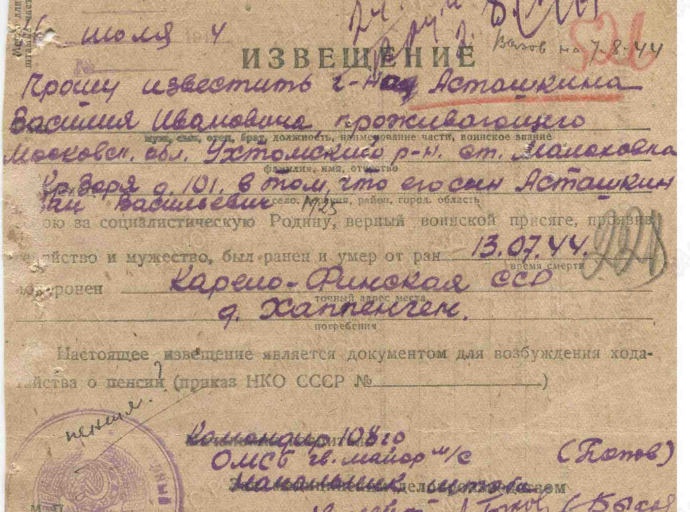 июля 4
Вызов на 7-8-44
528
№
ИЗВЕЩЕНИЕ
Прошу известить г-на Асташкина
Василия Ивановича проживающего
муж, сын, отец, брат, должность, наименование части, воинское звание
Московск. обл. Ухтомский р-н. ст. Малаховка
фамилия, имя, отчество
Кр. Заря д. 101. в том, что его сын Асташкин
село, район, город, область
Васильевич 1925
за социалистическую Родину, верный воинской присяге, проявив
и мужество, был ранен и умер от ран 13.07.44.
время смерти
228
Карело-Финская ССР
точный адрес места
д. Хаппенчем.
погребения
Настоящее извещение является документом для возбуждения хода-
тайства о пенсии (приказ НКО СССР № )
пенсия?
Командир 108го
ОМСБ гв. майор м/с (Попов)
Начальник